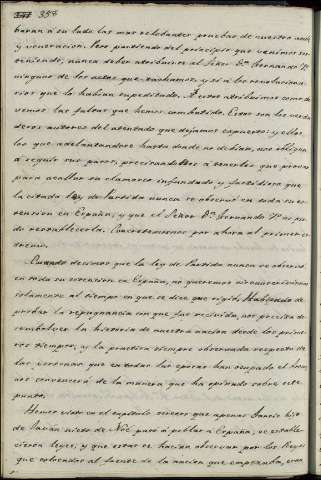 358
baran a su lado las mas relevantes pruebas de nuestro amor
y veneracion. Pero partiendo del principio que venimos sos
teniendo, nunca deben atribuirse al Señor Dn. Fernando 7º
ninguno de los actos que tachamos, y si a los revoluciona
rios que lo habian supeditado. A estos atribuiremos como de
vemos las faltas que hemos combatido. Estos son los verda
deros autores del atentado que dejamos expuesto: y ellos
los que adelantandose hasta donde no debian, nos obligan
á seguir sus pasos, precisandonos a hacerlos que
para acallar su clamoreo infundado y fastidioso que
la citada ley de Partida nunca se observó en toda su es
tension en España, y que el Señor Dn. Fernando 7º no pu
do restablecerla. Concretemonos por ahora al primer es
tremo.
Cuando decimos que la ley de Partida nunca se observó
en toda su estension en España, no queremos circunscribirnos
solamente al tiempo en que se dice que rigió. Habiendo de
probar la repugnancia con que fue recibida, nos precisa de
senvolver la historia de nuestra nacion desde los prime
ros tiempos, y la practica siempre observada respecto de
las personas que en todas las epocas han ocupado el trono,
nos convencerá de la manera que ha opinado sobre este
punto.
Hemos visto en el capitulo tercero que apenas Tarsis hijo
de Javán nieto de Noé pasó á poblar a España, se estable
cieron leyes, y que estas se hacian observar por los Reyes
que colocados al frente de la nacion que empezaba, eran